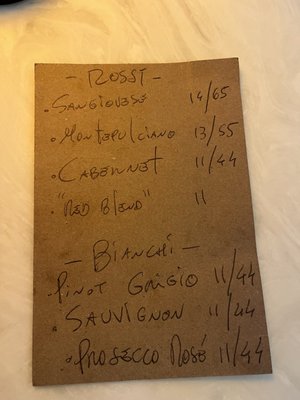 - ROSSI -
. SANGIOVESE 14/65
. MONTEPULCIANO 13/55
. CABERNET 11/44
. "RED BLEND" 11
- BIANCHI -
. PINOT GRIGIO 11/44
. SAUVIGNON 11/44
. PROSECCO ROSÉ 11/44